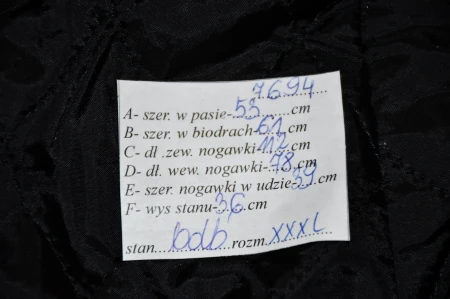 7694
A- szer. w pasie-53cm
B- szer. w biodrach-61cm
C- dł .zew. nogawki-112cm
D- dł. wew. nogawki-78cm
E- szer. nogawki w udzie-39cm
F- wys stanu-36cm
stan bdb rozm. XXXL